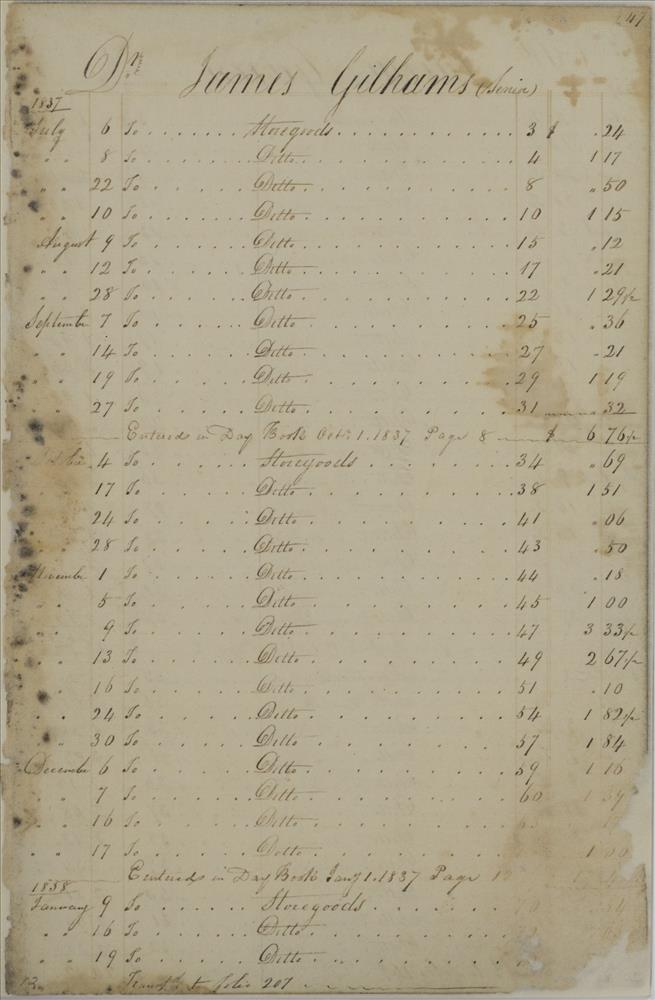 47
Dr. James Gilhams (Senior)
1837
July 6 To . . . . . . Storegoods . . . . . . . . . . 3 $ . 24
" " 8 To . . . . . . Ditto . . . . . . . . . . 4 1 17
" " 22 To . . . . . . Ditto . . . . . . . . . . 8 " 50
" " 10 To . . . . . . Ditto . . . . . . . . . . 10 1 15
August 9 To . . . . . . Ditto . . . . . . . . . . 15 " 12
" " 12 To . . . . . . Ditto . . . . . . . . . . 17 " 21
" " 28 To . . . . . . Ditto . . . . . . . . . . 22 1 29 1/2
September 7 To . . . . . . Ditto . . . . . . . . . . 25 " 36
" " 14 To . . . . . . Ditto . . . . . . . . . . 27 " 21
" " 19 To . . . . . . Ditto . . . . . . . . . . 29 1 19
" " 27 To . . . . . . Ditto . . . . . . . . . . 31 " 32
Entered in Day Book Octr. 1. 1837 Page 8 $ 6 76 1/2
4 To . . . . . . Storegoods . . . . . . . . . . 34 " 69
" " 17 To . . . . . . Ditto . . . . . . . . . . 38 1 51
" " 24 To . . . . . . Ditto . . . . . . . . . . 41 " 06
" " 28 To . . . . . . Ditto . . . . . . . . . . 43 " 50
November 1 To . . . . . . Ditto . . . . . . . . . . 44 " 18
" " 5 To . . . . . . Ditto . . . . . . . . . . 45 1 00
" " 9 To . . . . . . Ditto . . . . . . . . . . 47 3 33 1/2
" " 13 To . . . . . . Ditto . . . . . . . . . . 49 2 67 1/2
" " 16 To . . . . . . Ditto . . . . . . . . . . 51 " 10
" " 24 To . . . . . . Ditto . . . . . . . . . . 54 1 82 1/2
" " 30 To . . . . . . Ditto . . . . . . . . . . 57 1 84
December 6 To . . . . . . Ditto . . . . . . . . . . 59 1 16
" " 7 To . . . . . . Ditto . . . . . . . . . . 60 1
" " 16 To . . . . . . Ditto . . . . . . . . . .
" " 17 To . . . . . . Ditto . . . . . . . . . . 1
Entered in Day Book Jany 1. 1837 Page
1838
January 9 To . . . . . . Storegoods . . . . . . .
" " 16 To . . . . . . Ditto . . . . . . .
" " 19 To . . . . . . Ditto . . . . . . .
to folio 207